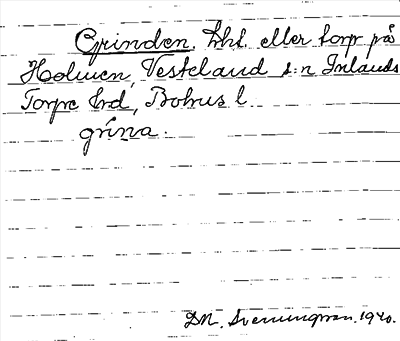 Grinden. Lht. eller torp på
Holmen, Västerland s:n Inlands
Torpe hd, Bohus l.
grina.
D.N. Svenungsson. 1940.